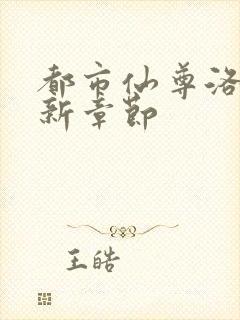 都市仙尊洛
新章节
王皓